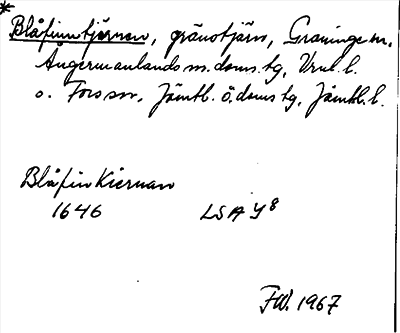 * Blåfinntjärnen, gränstjärn, Graninge sn,
Ångermanlands m. doms. tg, Vnl. l.
o. Fors sn, Jämtl. ö. doms tg, Jämtl. l.
Blåfin Kiernan
1646 LSA Y8
FW. 1967